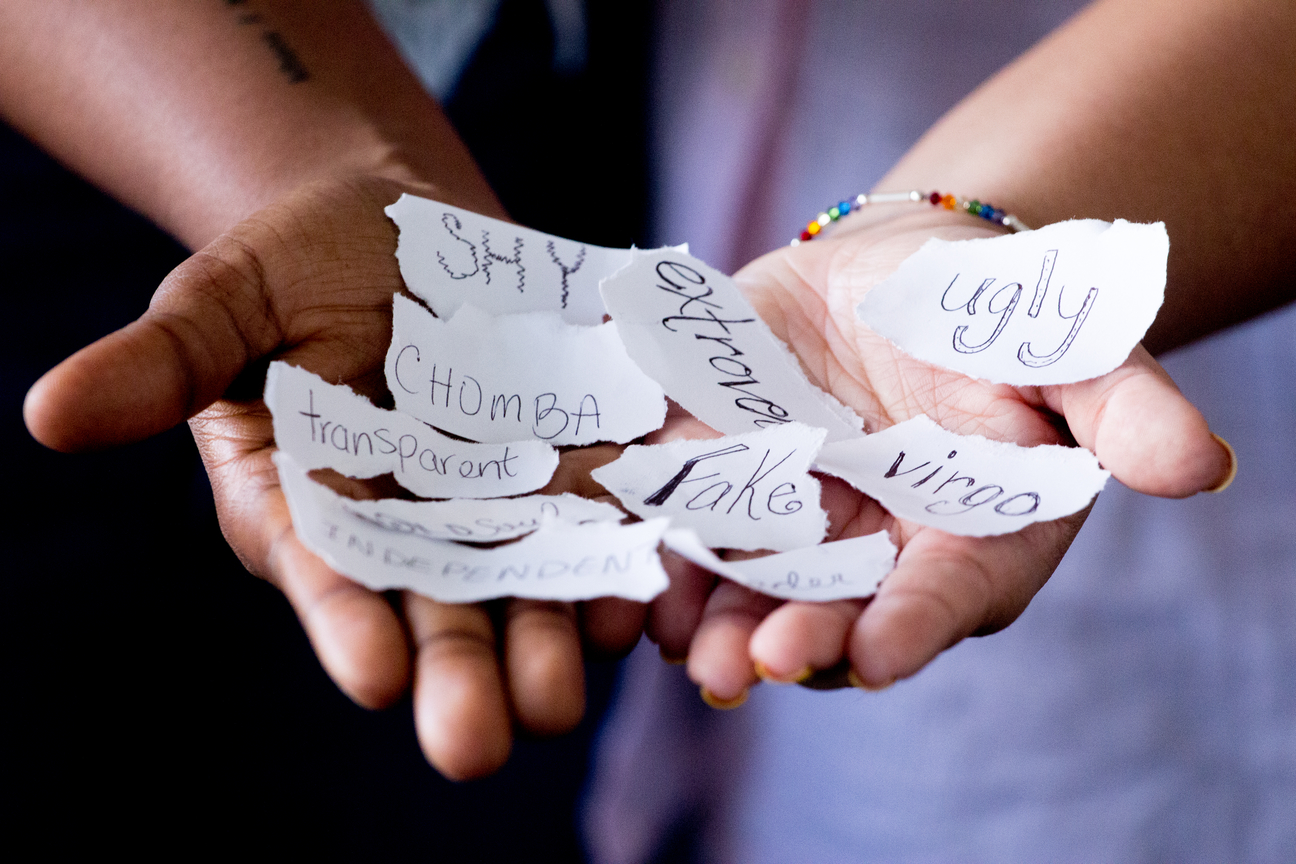 SHY
extrover
ugly
CHOMBA
transparent
Fake
virgo
INDEPENDENT